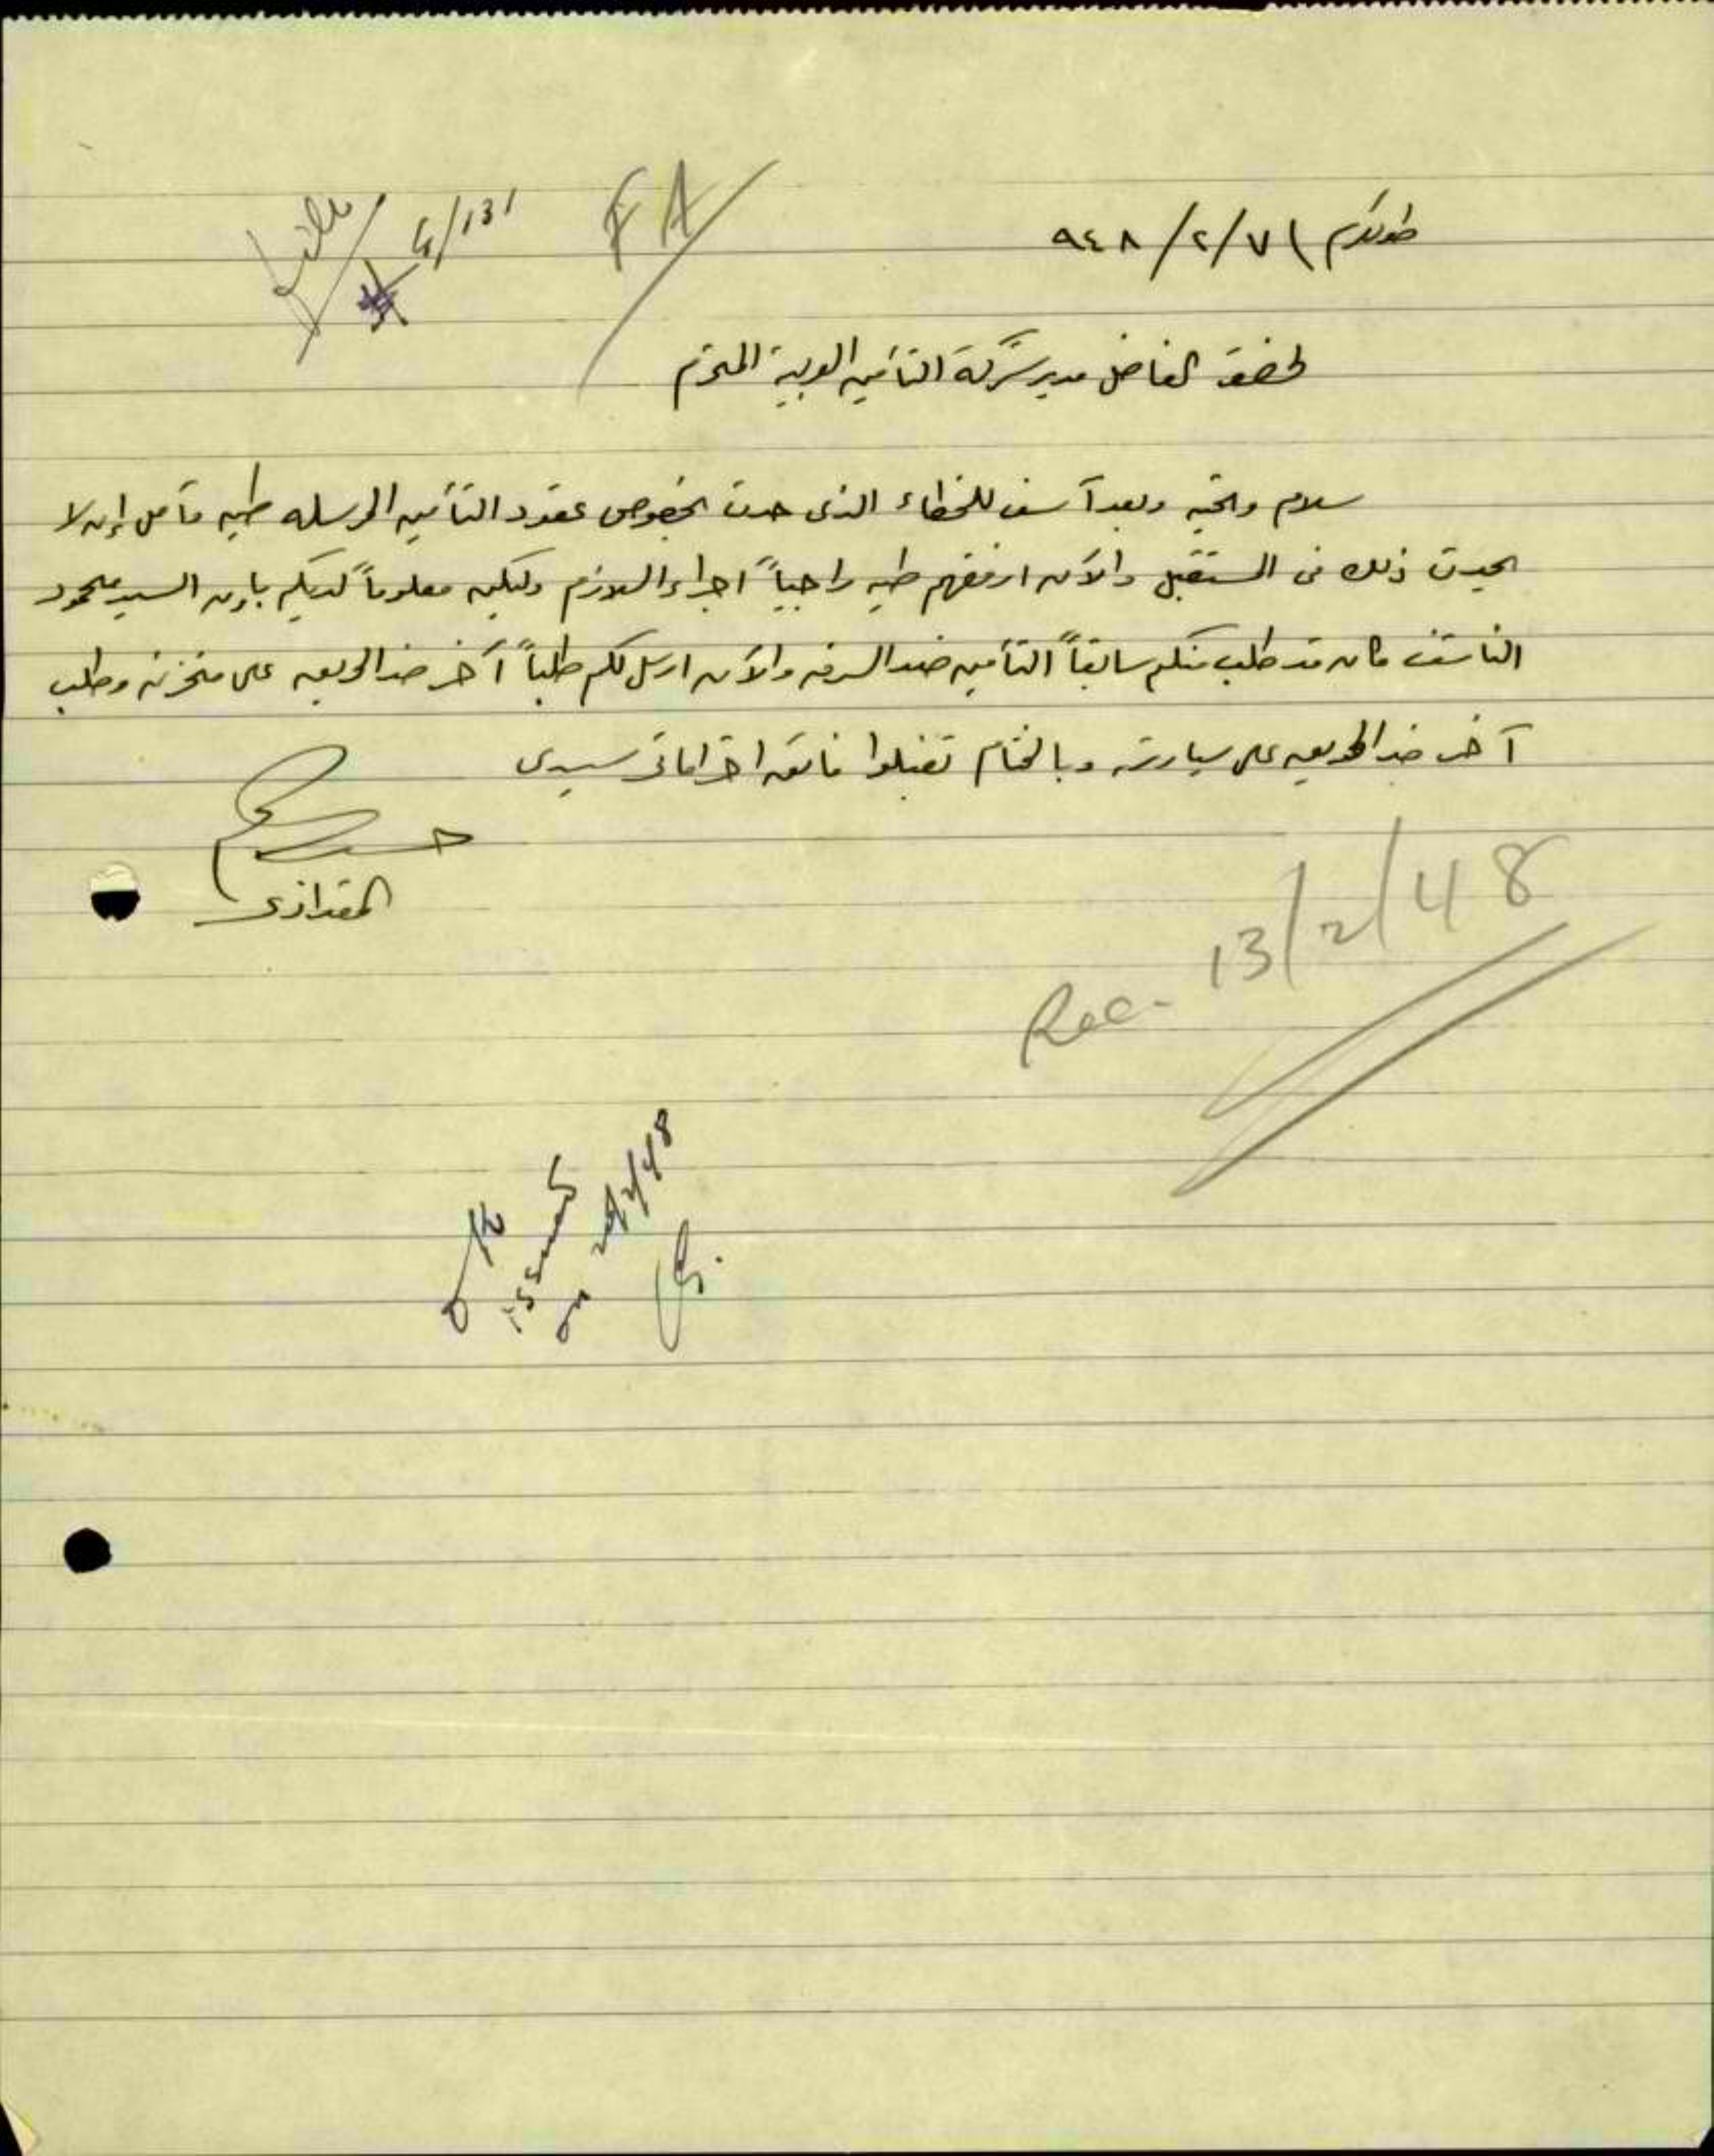 طولكرم ٧/٢/٩٤٨
F A
G/131
لحضرة الفاضل مدير شركة التأمين العربية المحترم
سلام وتحية وبعد آسف للخطاء الذى حدث بخصوص عقود التأمين المرسله طيه فآمل إن لا
يحدث ذلك فى المستقبل والآن ارفقهم طيه راجياً اجراء اللازم وليكن معلوماً لديكم بإن السيد محمود
الناشف كان قد طلب منكم سابقاً التأمين ضد السرقه والآن ارسل لكم طلباً آخر ضد الحريق على مخزنه وطلب
آخر ضد الحريق على سيارته وبالختام تفضلوا فائق احتراماتى سيدى
Rec- 13/2/48
ok
issued
on 20/2/48